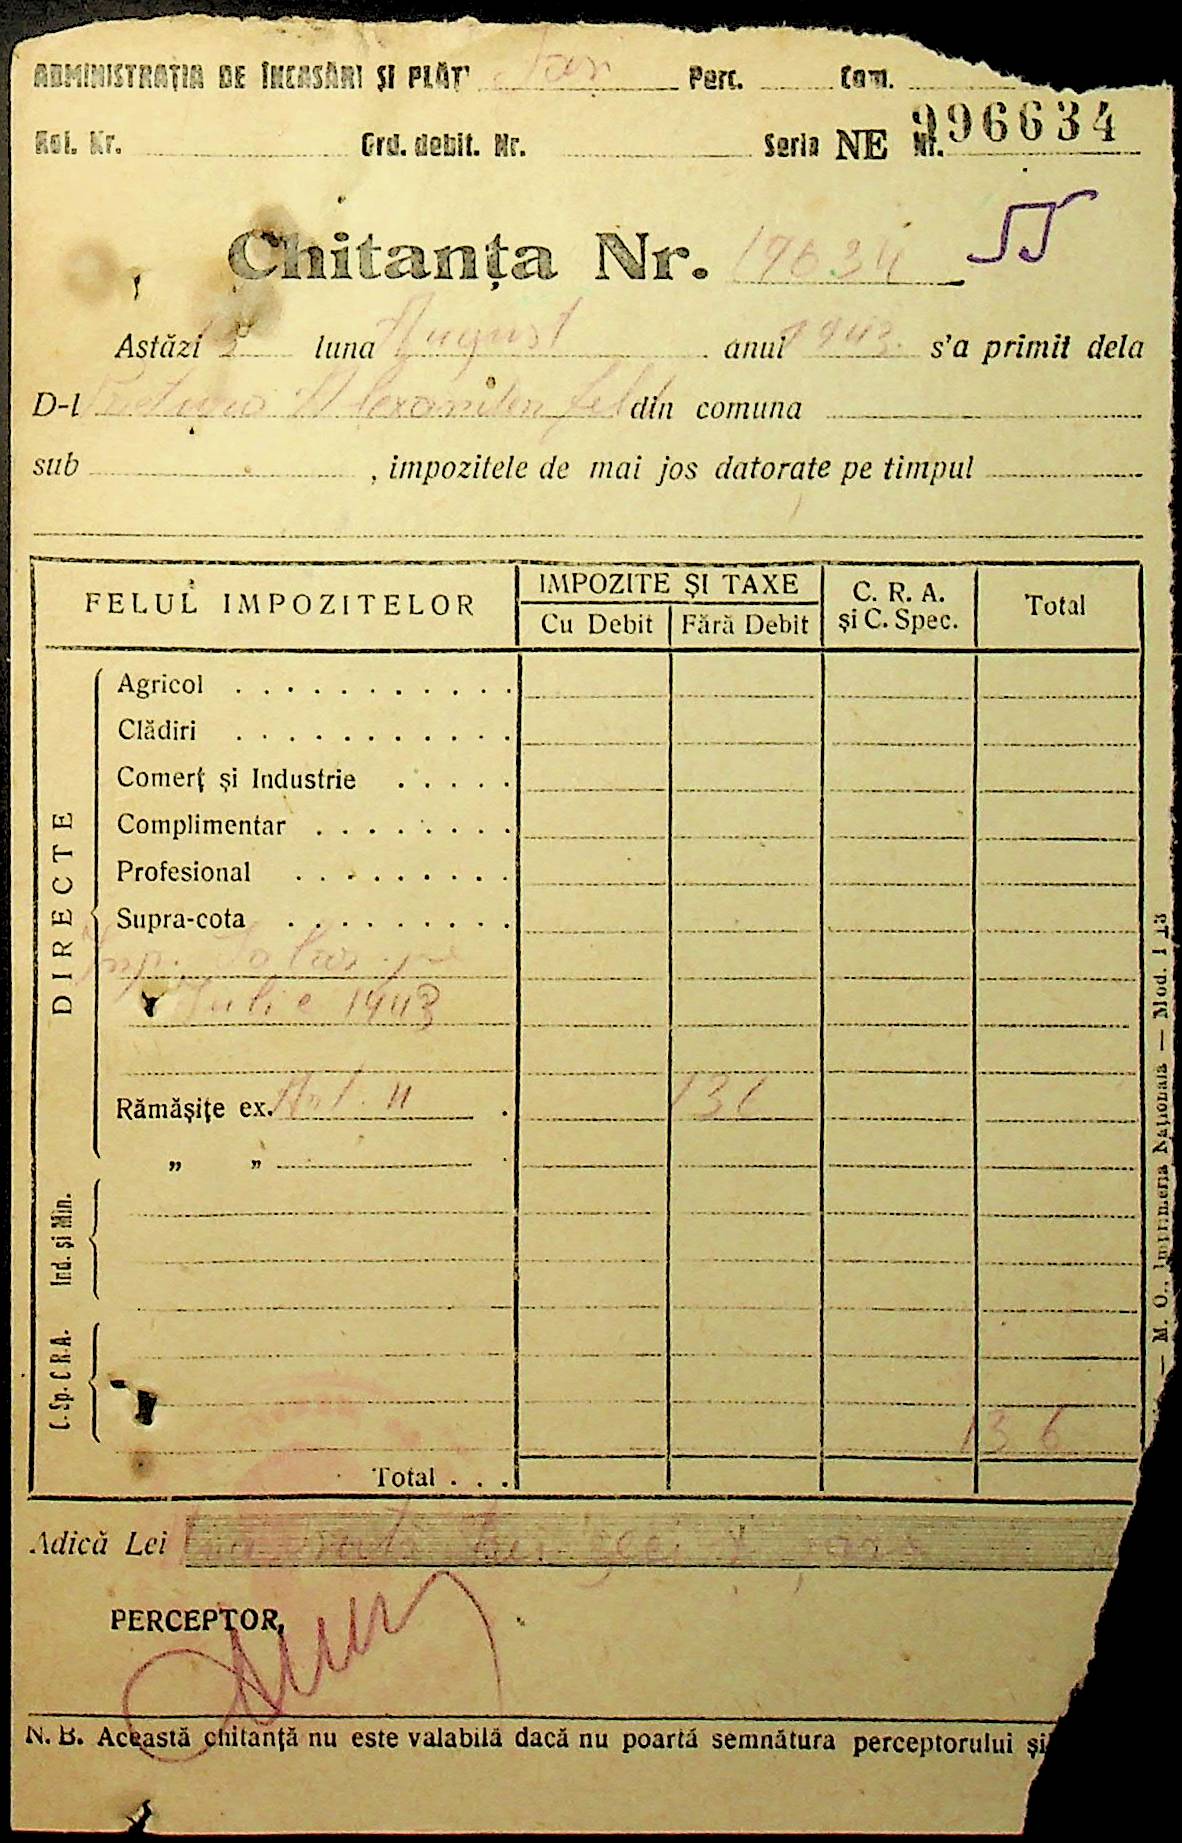 ADMINISTRAȚIA DE ÎNCASĂRI ȘI PLĂȚI Perc. Com.
Rol. Nr. Ord. debit. Nr. Seria NE Nr. 996634
Chitanța Nr. 19634
Astăzi luna August anul 1943 s'a primit dela
D-l din comuna
sub , impozitele de mai jos datorate pe timpul
FELUL IMPOZITELOR IMPOZITE ȘI TAXE C. R. A. și C. Spec. Total
Cu Debit Fără Debit
DIRECTE
Agricol
Clădiri
Comerț și Industrie
Complimentar
Profesional
Supra-cota
Imp. Salar pe
Iulie 1943
Rămășițe ex.
„ „
Ind. și Min.
C. Sp. C R A.
136
Total
Adică Lei
PERCEPTOR,
N. B. Această chitanță nu este valabilă dacă nu poartă semnătura perceptorului și
— M. O., Imprimeria Națională — Mod. 113